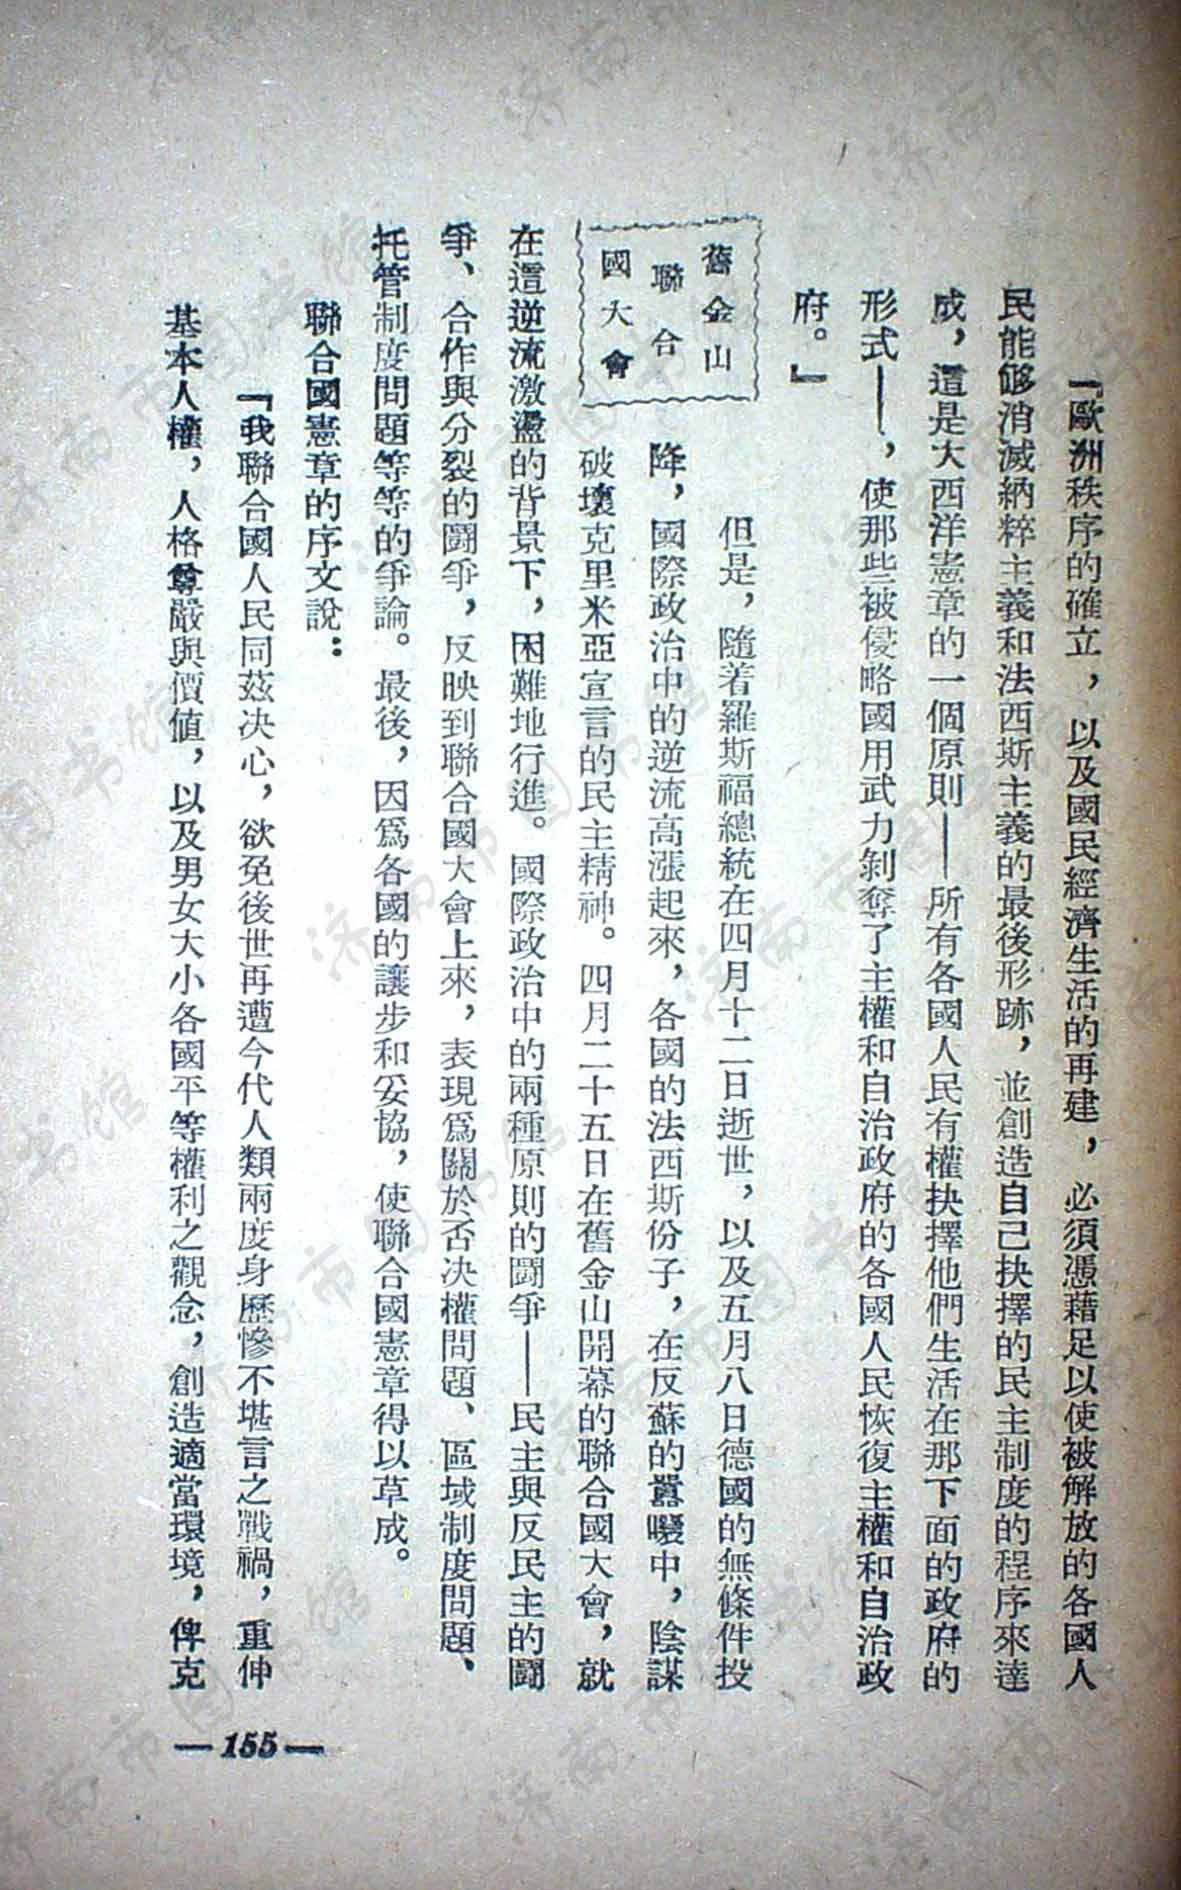 『歐洲秩序的確立，以及國民經濟生活的再建，必須憑藉足以使被解放的各國人
民能够消滅納粹主義和法西斯主義的最後形跡，並創造自己抉擇的民主制度的程序來達
成，這是大西洋憲章的一個原則——所有各國人民有權抉擇他們生活在那下面的政府的
形式——，使那些被侵略國用武力剝奪了主權和自治政府的各國人民恢復主權和自治政
府。』
舊金山
聯合
國大會
但是，隨着羅斯福總統在四月十二日逝世，以及五月八日德國的無條件投
降，國際政治中的逆流高漲起來，各國的法西斯份子，在反蘇的囂嚷中，陰謀
破壞克里米亞宣言的民主精神。四月二十五日在舊金山開幕的聯合國大會，就
在這逆流激盪的背景下，困難地行進。國際政治中的兩種原則的鬪爭——民主與反民主的鬪
爭、合作與分裂的鬪爭，反映到聯合國大會上來，表現爲關於否决權問題、區域制度問題、
托管制度問題等等的爭論。最後，因爲各國的讓步和妥協，使聯合國憲章得以草成。
聯合國憲章的序文說：
『我聯合國人民同茲决心，欲免後世再遭今代人類兩度身歷慘不堪言之戰禍，重伸
基本人權，人格尊嚴與價値，以及男女大小各國平等權利之觀念，創造適當環境，俾克
—155—
济南市图书馆